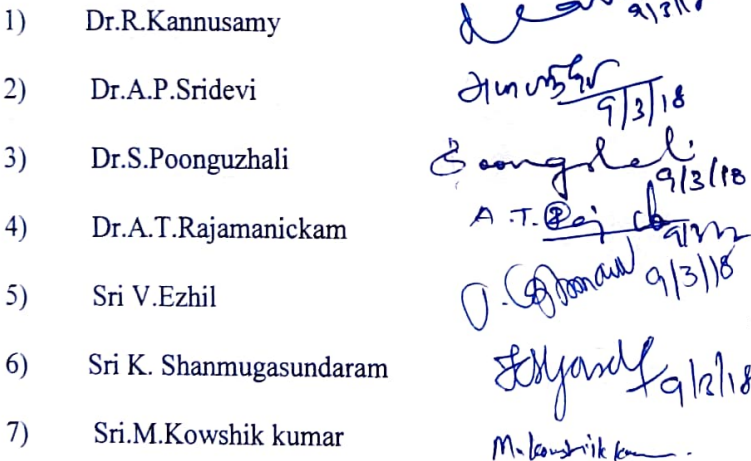 1) Dr.R.Kannusamy 9/3/18
2) Dr.A.P.Sridevi 9/3/18
3) Dr.S.Poonguzhali 9/3/18
4) Dr.A.T.Rajamanickam A.T.
5) Sri V.Ezhil 9/3/18
6) Sri K. Shanmugasundaram 9/3/18
7) Sri.M.Kowshik kumar M.Kowshik